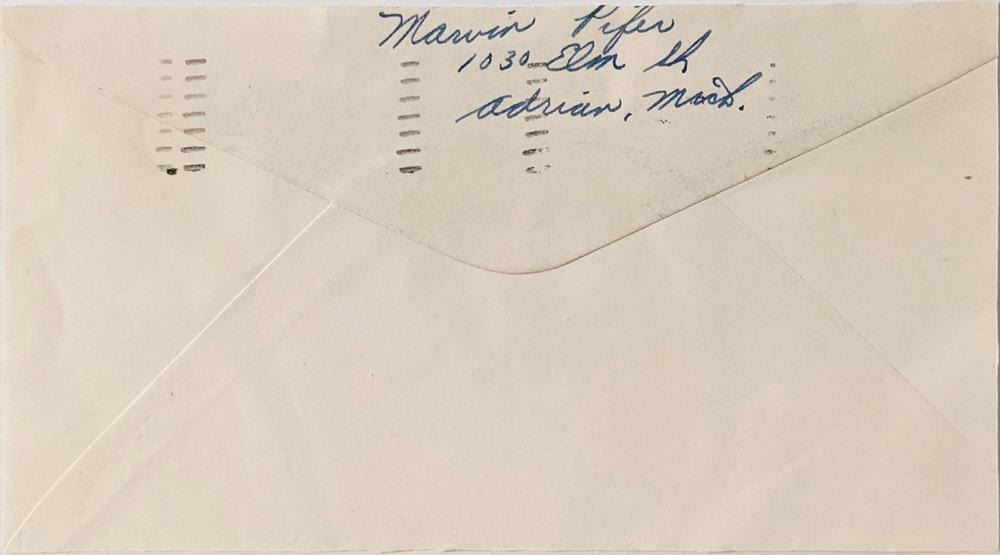 Marvin Pifer
1030 Elm St
Adrian, Mich.